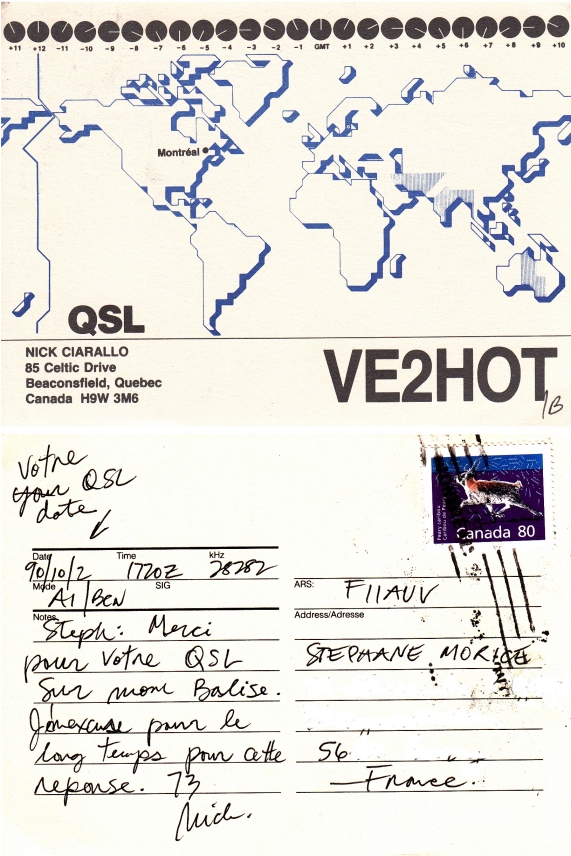 +11 +12 -11 -10 -9 -8 -7 -6 -5 -4 -3 -2 -1 GMT +1 +2 +3 +4 +5 +6 +7 +8 +9 +10
Montréal
QSL
NICK CIARALLO
85 Celtic Drive
Beaconsfield, Quebec
Canada H9W 3M6
VE2HOT
/B
Votre
your QSL
date
Peary caribou
Caribou de Peary
Canada 80
Date Time kHz
90/10/2 1720Z 28282
Mode SIG
A1/BCN
Notes
Steph: Merci
pour votre QSL
Sur mom Balise.
J'mexcuse pour le
long temps pour cette
reponse. 73
Nick.
ARS: F11AUV
Address/Adresse
STEPHANE MORICE
56
France.